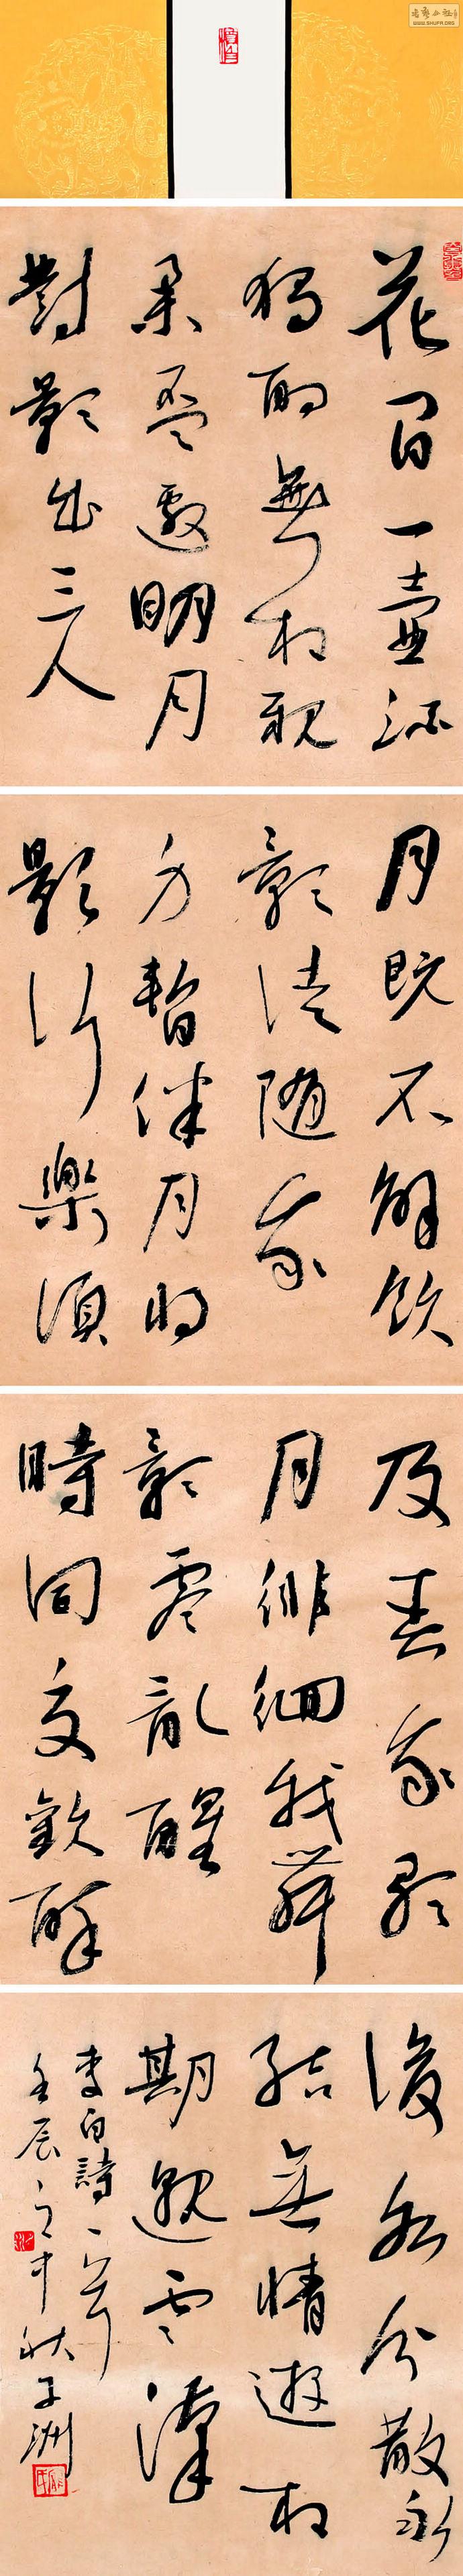 WWW.SHUFA.ORG
花間一壺酒
獨酌無相親
舉盃邀明月
對影成三人
月既不解飲
影徒隨我
身暫伴月將
影行樂須
及春我歌
月徘徊我舞
影零亂醒
時同交歡醉
後各分散永
結無情遊相
期邈雲漢
李白詩一首
壬辰之中秋子洲